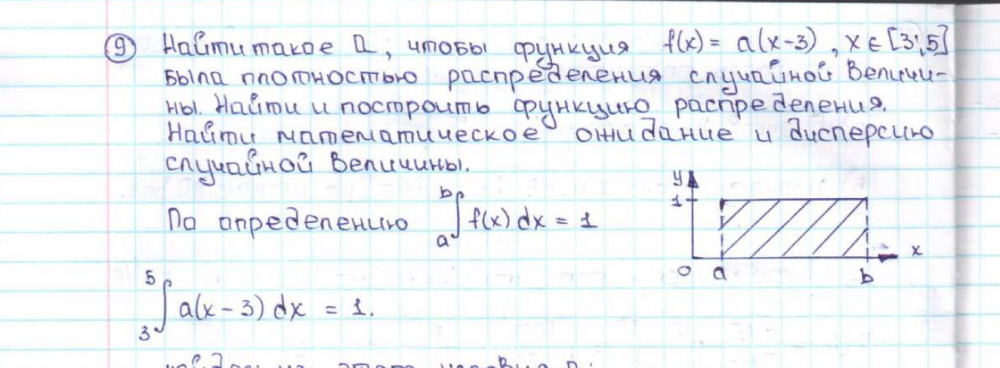 9 Найти такое a, чтобы функция f(x) = a(x-3), x ∈ [3; 5]
была плотностью распределения случайной величи-
ны. Найти и построить функцию распределения.
Найти математическое ожидание и дисперсию
случайной величины.
По определению ∫ₐᵇ f(x) dx = 1
y
1
0 a b x
∫₃⁵ a(x - 3) dx = 1.
из этого